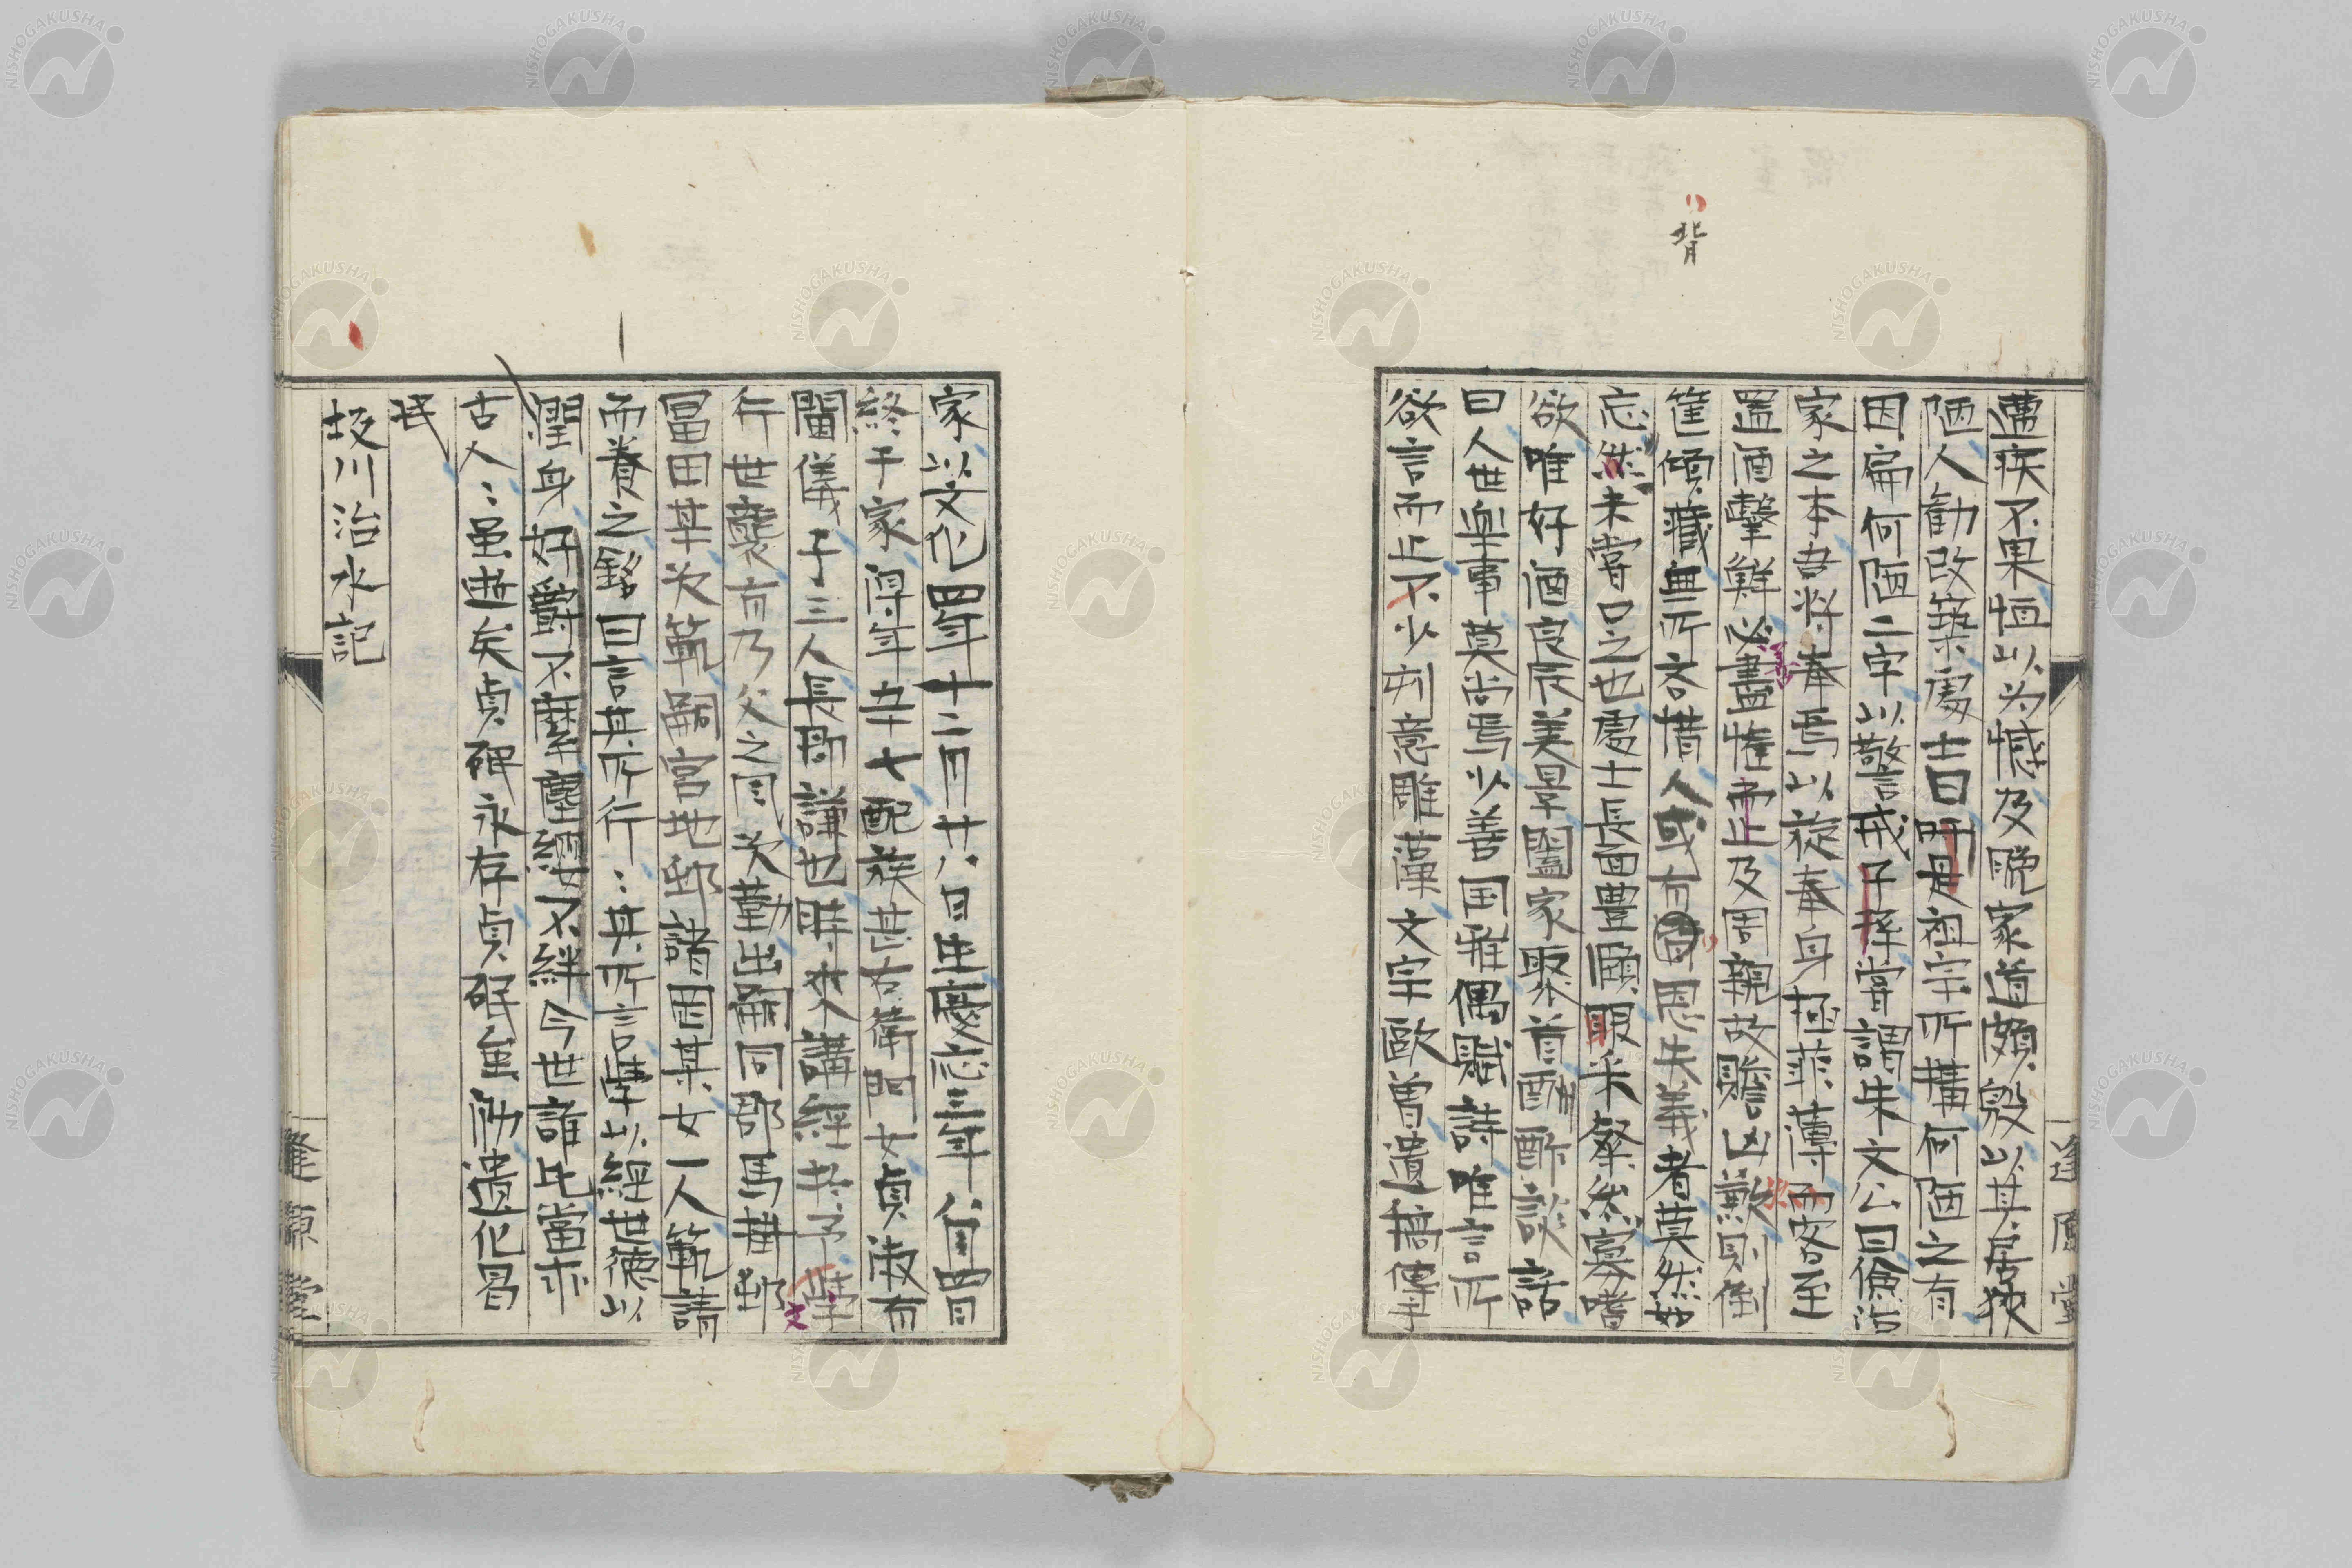 背
遭疾不果恒以为憾及晚家道頗殷以其居狹
陋人勸改築處士曰吁是祖宗所構何陋之有
因扁何陋二字以警戒子孫嘗謂朱文公曰儉治
家之本吾将奉焉以旋奉身極菲薄而客至
置酒擊鮮必盡惟而止及周親故贍凶歉則倒
筐傾藏無所吝惜人或有背恩失義者莫然如
忘然未嘗口之也處士長面豊頤眼采粲然寡嗜
欲唯好酒良辰美景闔家聚首酬酢談話
曰人世楽事莫尚焉少善国雅偶賦詩唯言所
欲言而止不少刻意雕藻文宗歐曽遺稿傳于
家以文化四年十二月廿八日生慶応三年八月四日
終于家得年五十七配族甚右衛門女貞淑有
閫儀子三人長勗謙也時來講經其子
行世襲有乃父之風次勤出嗣同郡馬
冨田某次範嗣宮地邸諸因某女一人範請
而養之銘曰言其所行〻其所言学以經世徳以
潤身好爵不縻塵網不絆今世誰比當求
古人〻虽逝矣貞碑永存貞碑虽泐遺化曷
泯
坂川治水記
逢原堂
逢原堂